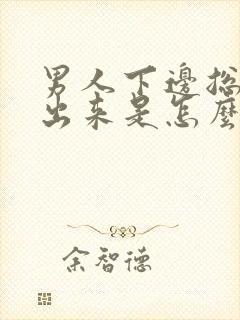 男人下邊總
出來是怎麼
余智德